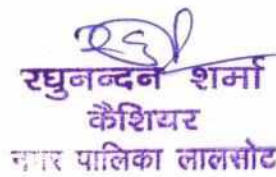 रघुनन्दन शर्मा
कैशियर
नगर पालिका लालसोट